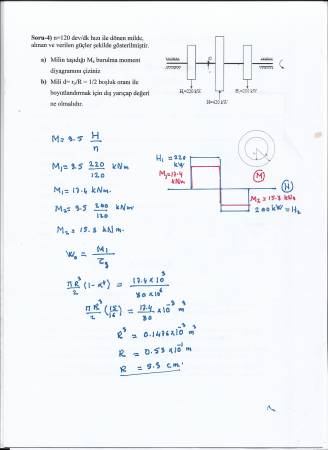 Soru-4) n=120 dev/dk hızı ile dönen milde,
alınan ve verilen güçler şekilde gösterilmiştir.
a) Milin taşıdığı Mb burulma moment
diyagramını çiziniz
b) Mili d= ri/R = 1/2 boşluk oranı ile
boyutlandırmak için dış yarıçap değeri
ne olmalıdır.
H1=220 kW
M = 9.5 H/n
M1 = 9.5 220/120 kNm
M1 = 17.4 kNm.
M2 = 9.5 200/120 kNm
M2 = 15.8 kNm.
H1 = 220 kW
M1=17.4 kNm
M
H
M2 = 15.8 kNm
200 kW = H2
πR³/2 (1-α⁴) = 17.4 x 10³/80 x 10⁶
πR³/2 (15/16) = 17.4/80 x 10⁻³ m³
R³ = 0.1476 x 10⁻³ m³
R = 0.53 x 10⁻¹ m
R = 5.3 cm